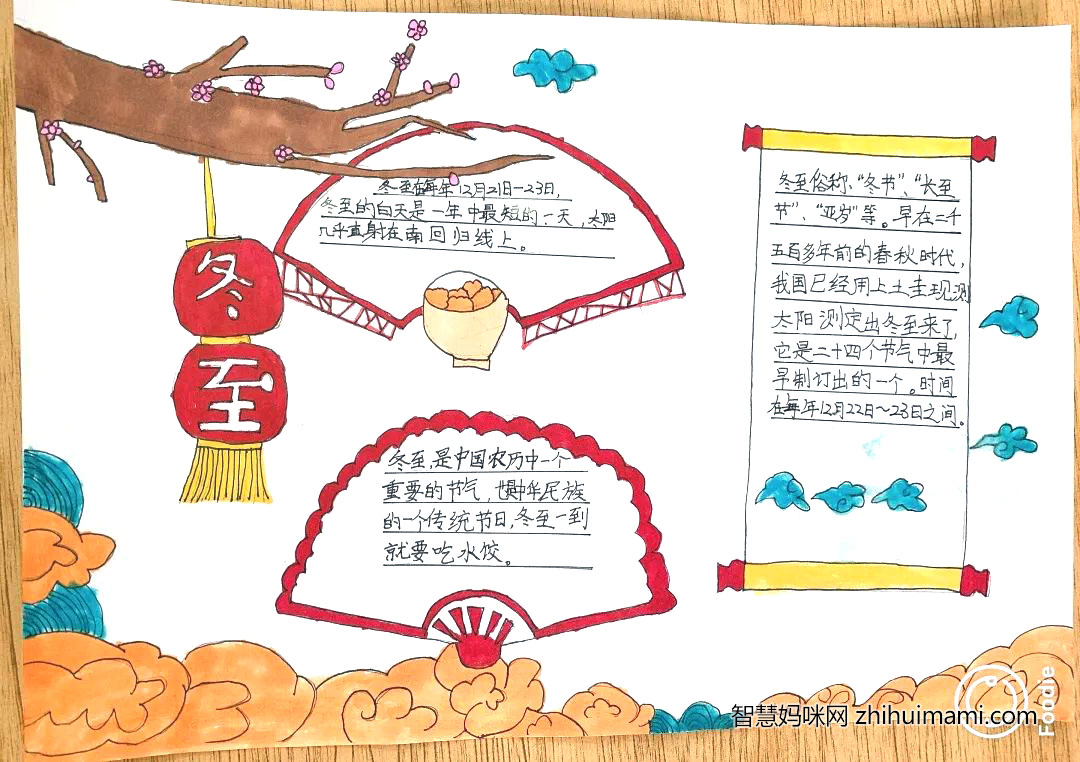 冬至
冬至在每年12月21日-23日,
冬至的白天是一年中最短的一天,太阳
几乎直射在南回归线上。
冬至,是中国农历中一个
重要的节气,也是中华民族
的一个传统节日,冬至一到
就要吃水饺。
冬至俗称、“冬节”、“长至
节”、“亚岁”等。早在二千
五百多年前的春秋时代,
我国已经用上土圭现测
太阳测定出冬至来了,
它是二十四个节气中最
早制订出的一个。时间
在每年12月22日~23日之间。
智慧妈咪网 zhihuimami.com
Foodie